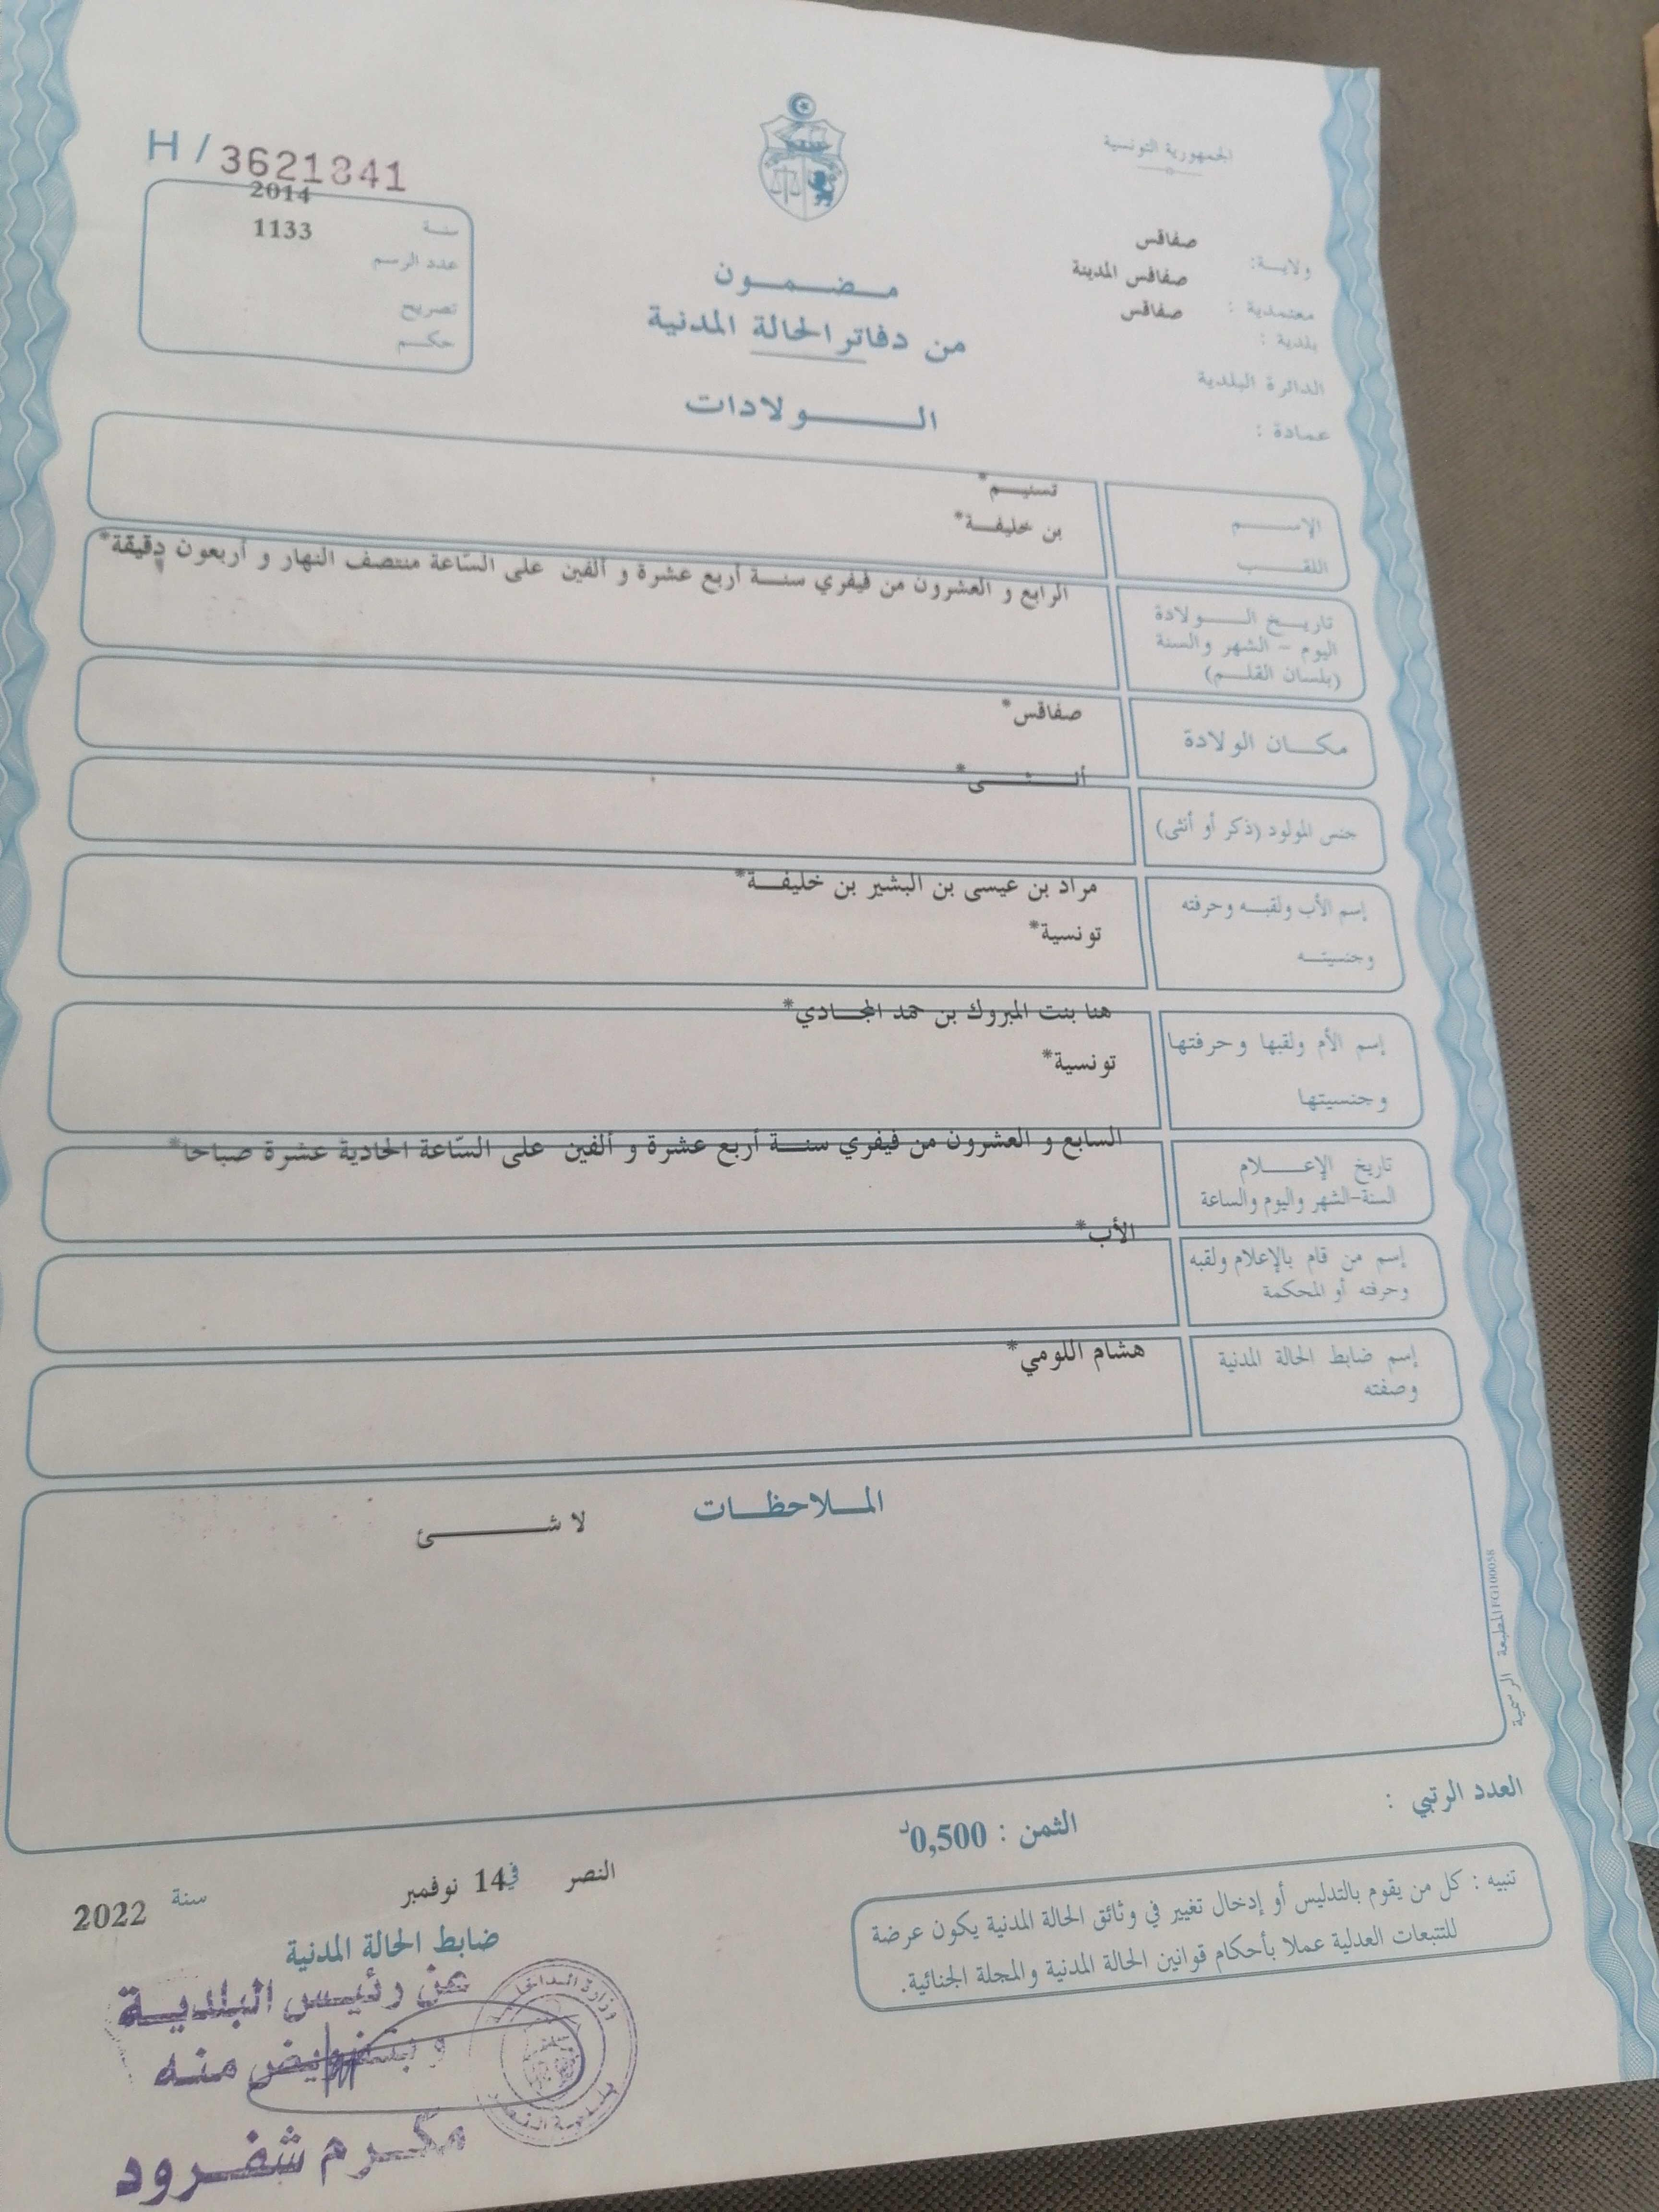 الجمهورية التونسية
H / 3621841
ولايـــة: صفاقس
معتمدية : صفاقس المدينة
بلدية : صفاقس
الدائرة البلدية
عمادة :
سنـــة 2014
عدد الرسم 1133
تصريح
حكـــم
مـــضـــمـــون
من دفاتر الحالة المدنية
الـــــولادات
الإســـــم تسنيـــم*
اللقـــــب بن خليفـــة*
تاريـــخ الـــــولادة
اليوم - الشهر والسنة
(بلسان القلـــم)
الرابع و العشرون من فيفري سنـــة أربع عشرة و ألفين على السّاعة منتصف النهار و أربعون دقيقة*
مكـــان الولادة صفاقس*
جنس المولود (ذكر أو أنثى) أنـــثـــى*
إسم الأب ولقبـــه وحرفته مراد بن عيسى بن البشير بن خليفـــة*
وجنسيتـــه تونسية*
إسم الأم ولقبها وحرفتها هنا بنت المبروك بن حمد المجـــادي*
وجنسيتها تونسية*
تاريخ الإعـــــلام
السنة-الشهر واليوم والساعة
السابع و العشرون من فيفري سنـــة أربع عشرة و ألفين على السّاعة الحادية عشرة صباحا*
إسم من قام بالإعلام ولقبه
وحرفته أو المحكمة
الأب*
إسم ضابط الحالة المدنية
وصفته
هشام اللومي*
المـــلاحظـــات
لا شـــــــئ
المطبعة الرسمية FG100058
العدد الرتبي :
الثمن : 0,500د
تنبيه : كل من يقوم بالتدليس أو إدخال تغيير في وثائق الحالة المدنية يكون عرضة
للتتبعات العدلية عملا بأحكام قوانين الحالة المدنية والمجلة الجنائية.
النصر في 14 نوفمبر سنة 2022
ضابط الحالة المدنية
عن رئيس البلديـــة
وبتفويض منه
مكـــرم شفـــرود
وزارة الداخلية
بلدية النصر